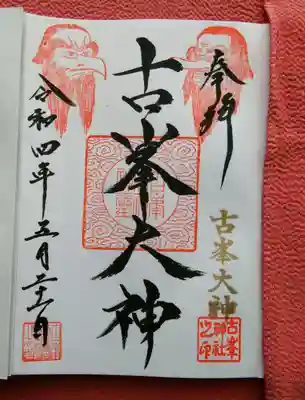 奉拝
古峯大神
古峯大神
古峯
神社
之印
令和四年五月二十一日